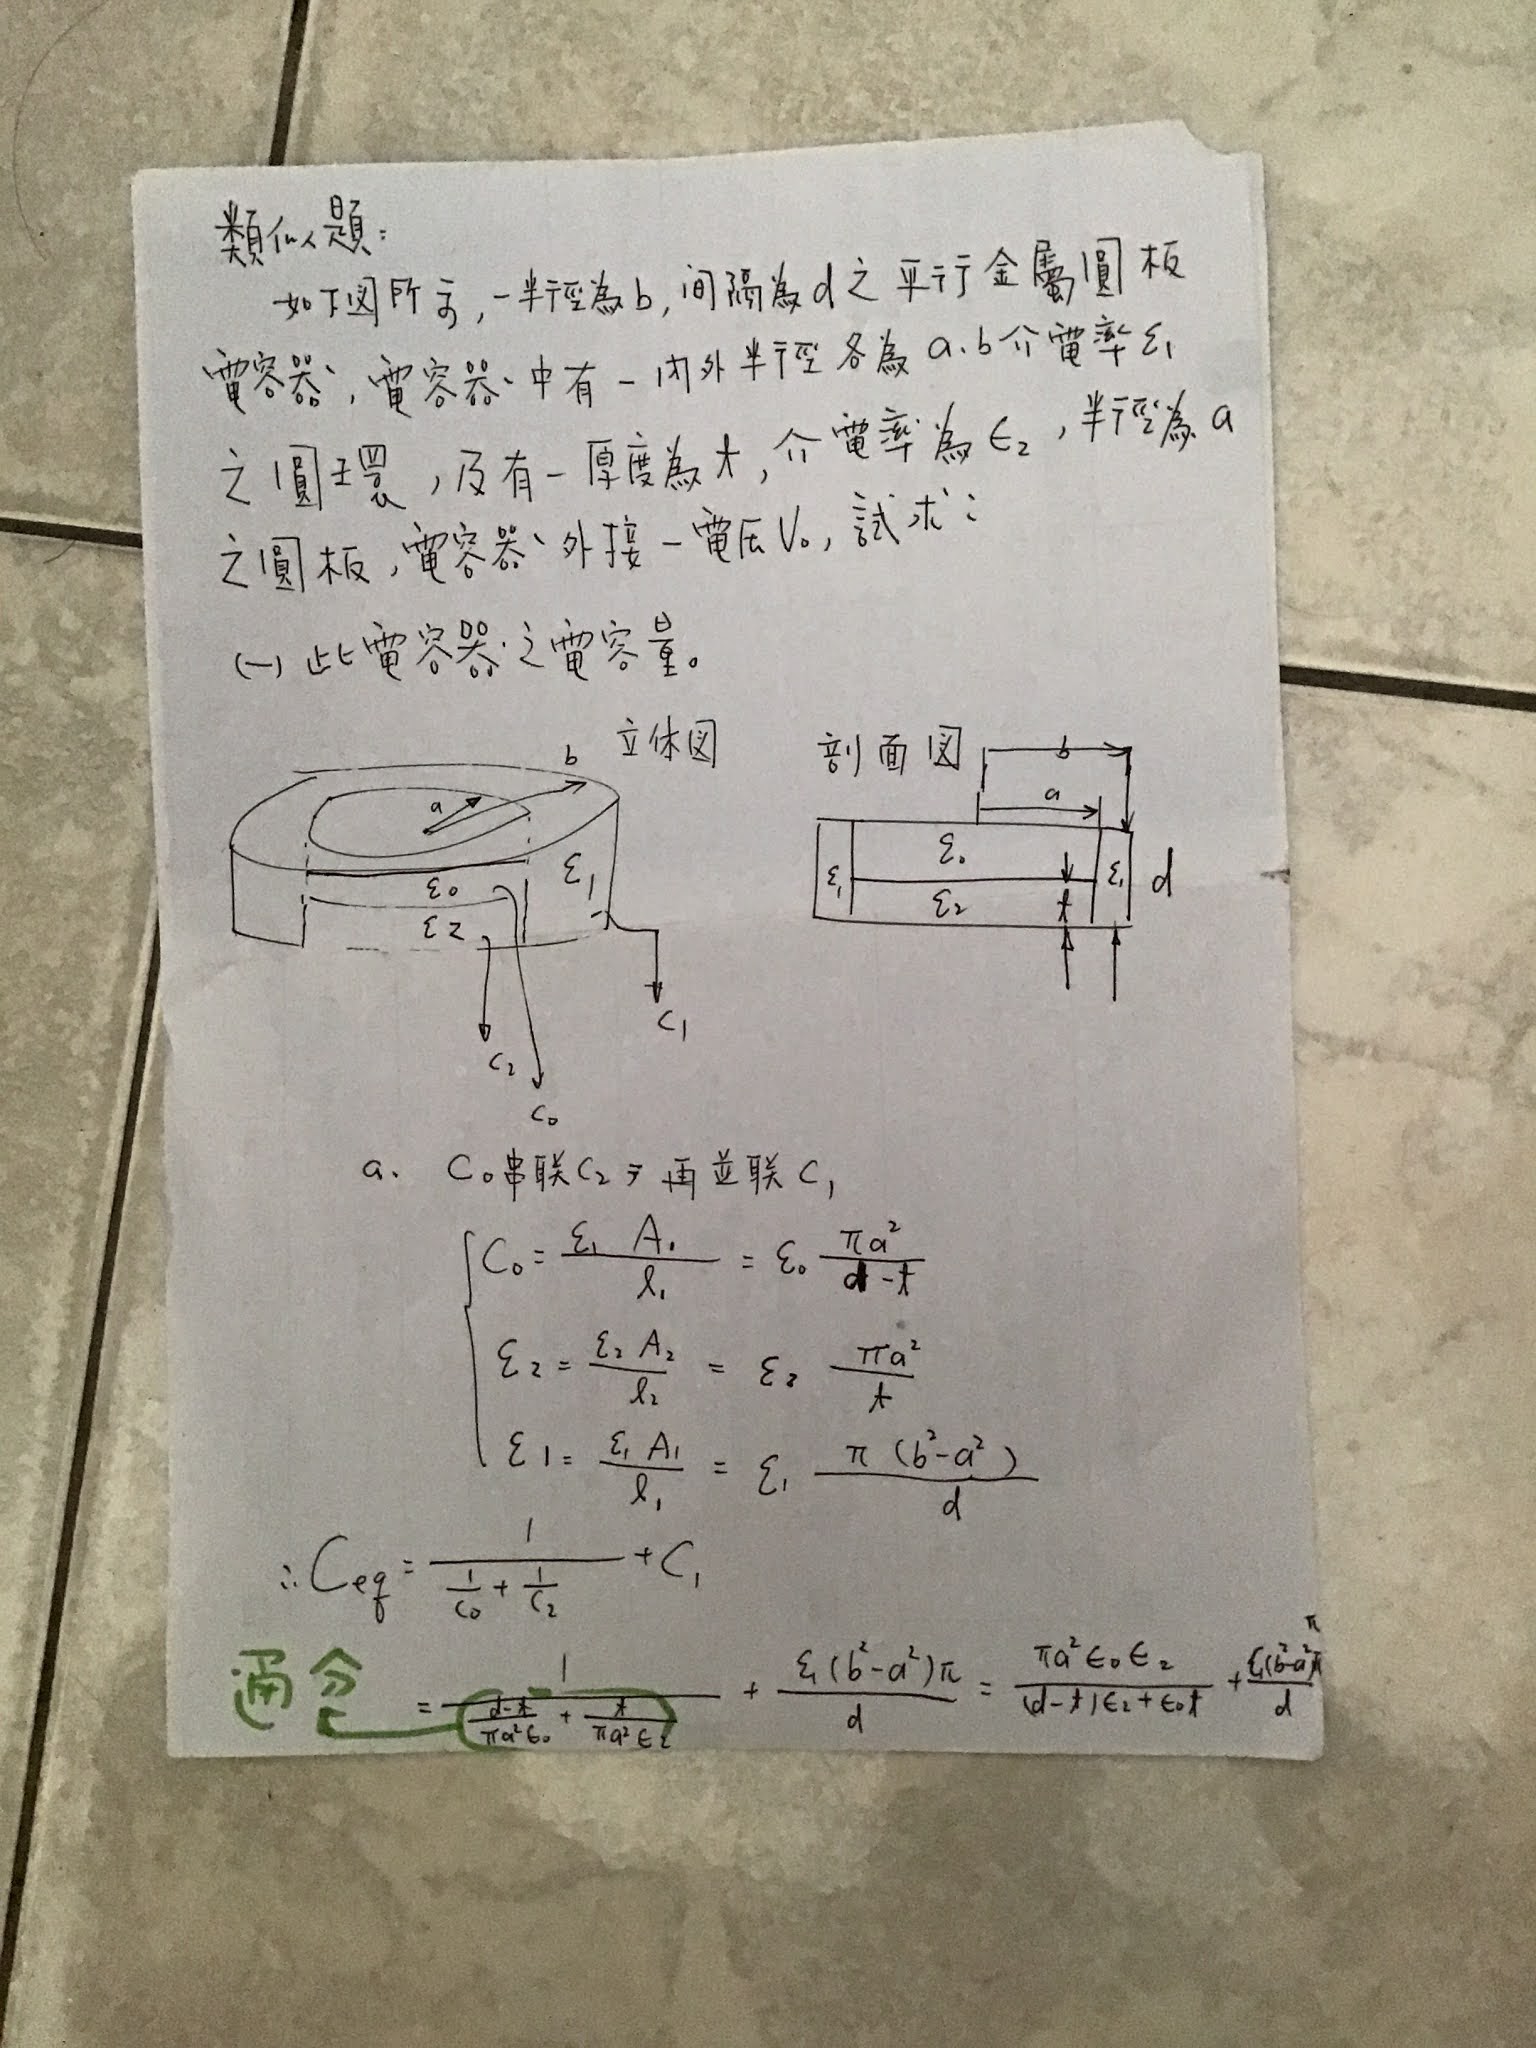 類似題:
如下図所示,一半徑為b,间隔為d之平行金屬圓板
電容器,電容器中有一內外半徑各為a.b介電率ε1
之圓環,及有一厚度為t,介電率為ε2,半徑為a
之圓板,電容器外接一電压V0,試求:
(一)此電容器之電容量。
立体図
剖面図
b
a
ε0
ε2
ε1
C2
C0
C1
b
a
ε1
ε0
ε2
t
ε1
d
a. C0串联C2⇒再並联C1
C0 = ε1 A0 / l1 = ε0 πa² / d-t
ε2 = ε2 A2 / l2 = ε2 πa² / t
ε1 = ε1 A1 / l1 = ε1 π(b²-a²) / d
∴Ceq = 1 / (1/C0 + 1/C2) + C1
通分
= 1 / (d-t/πa²ε0 + t/πa²ε2) + ε1(b²-a²)π / d = πa²ε0ε2 / (d-t)ε2+ε0t + ε1(b²-a²)π / d